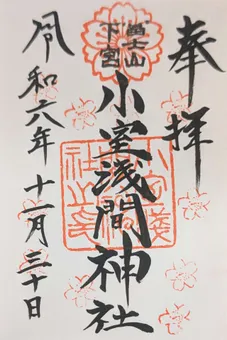 奉拝
冨士山
下宮
小室浅間神社
令和六年十一月三十日